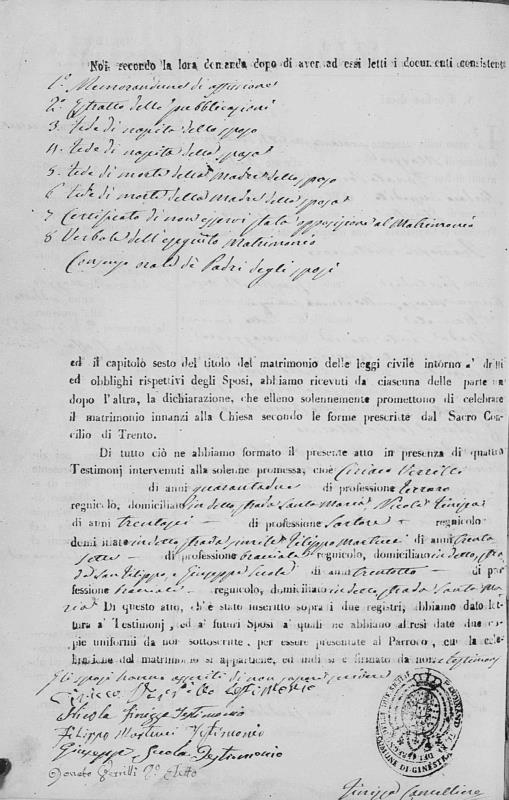 Noi secondo la lora domanda dopo di aver ad essi letti i documenti consistenti
1° Memorandum di affissione
2° Estratto delle pubblicazioni
3. fede di nascita dello sposo
4. fede di nascita della sposa
5. fede di morte della madre dello sposo
6 fede di morte della madre della sposa
7 Certificato di non esservi stata opposizione al Matrimonio
8 Verbale dell'eseguito Matrimonio
Consenso orale de Padri degli sposi
ed il capitolo sesto del titolo del matrimonio delle leggi civile intorno a' dritti
ed obblighi rispettivi degli Sposi, abbiamo ricevuti da ciascuna delle parte una
dopo l'altra, la dichiarazione, che elleno solennemente promettono di celebrare
il matrimonio innanzi alla Chiesa secondo le forme prescritte dal Sacro Con-
cilio di Trento.
Di tutto ciò ne abbiamo formato il presente atto in presenza di quattro
Testimonj intervenuti alla solenne promessa, cioè Ciriaco Verrilli
di anni quarantadue di professione ferraro
regnicolo, domiciliato in detto, strada Santa Maria, Nicola Finizza
di anni trentasei di professione Sartore regnicolo
domiciliato in detto, strada simile Filippo Martucci di anni trenta
sette di professione bracciale regnicolo, domiciliato in detto, stra
da San Filippo, e Giuseppe Scola di anni trentotto di pro
fessione bracciale regnicolo, domiciliato in detto, strada Santa Ma
ria Di questo atto, ch'è stato inscritto sopra i due registri, abbiamo dato let-
tura a' Testimonj, ed a' futuri Sposi a' quali ne abbiamo altresì date due co-
pie uniformi da noi sottoscritte, per essere presentate al Parroco, cui la cele-
brazione del matrimonio si appartiene, ed indi si è firmato da noi e testimonj
gli sposi hanno asserito di non sapere scrivere
Ciriaco Verrilli Testimonio
Nicola Finizza Testimonio
Filippo Martucci Testimonio
Giuseppe Scola Testimonio
Donato Verrilli 2° Eletto
DUE SICILIE
COMUNE DI GINESTRA
Finizza Cancelliere